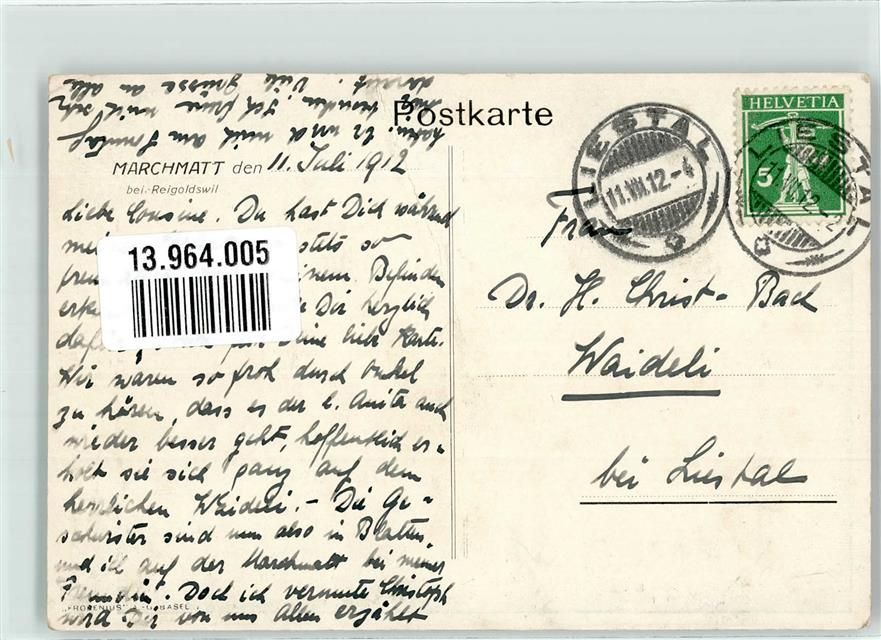 Postkarte
HELVETIA
5
LIESTAL
11.VII.12.-4
LIESTAL
MARCHMATT den 11. Juli 1912
bei Reigoldswil
Liebe Cousine. Du hast Dich während
stets so
Befinden
Dir herzlich
liebe Karte.
Wir waren so froh durch Onkel
zu hören, dass es der l. Anita auch
wieder besser geht, hoffentlich er-
holt sie sich ganz auf dem
herrlichen Waideli. – Die Ge-
schwister sind nun also in Blatten,
und ich auf der Marchmatt bei meiner
Freundin. Doch ich vermute Christoph
wird Dir von uns Allen erzählt
"FROBENIUS" A.-G. BASEL
haben. Er wird mich am Sonntag
Ich freue mich sehr
darauf. Viele Grüsse an alle
13.964.005
Frau
Dr. H. Christ-Bach
Waideli
bei Liestal